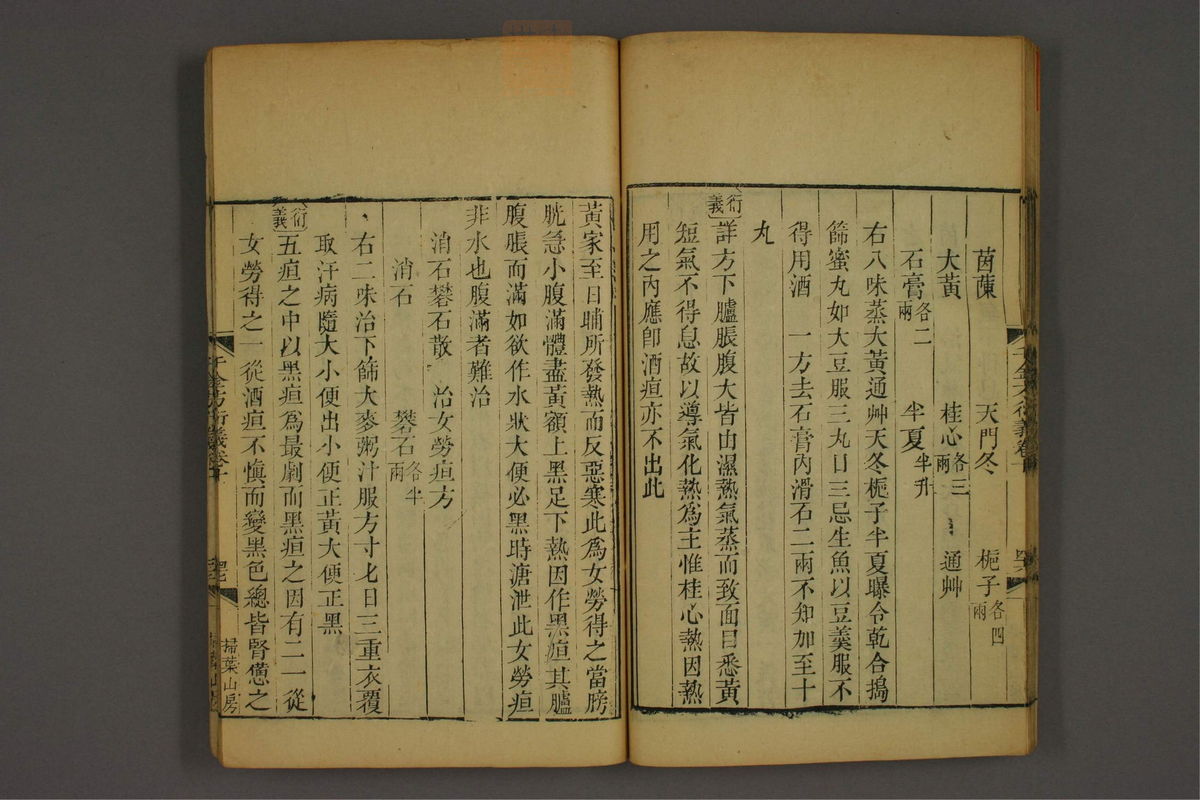 茵蔯　天門冬　梔子各四兩
大黃　桂心各三兩　通艸
石膏各二兩　半夏半升
右八味蒸大黃通艸天冬梔子半夏曝令乾合搗
篩蜜丸如大豆服三丸日三忌生魚以豆羹服不
得用酒　一方去石膏內滑石二兩不知加至十
丸
衍義詳方下臚脹腹大皆由濕熱氣蒸而致面目悉黃
短氣不得息故以導氣化熱為主惟桂心熱因熱
用之內應卽酒疸亦不出此
黃家至日晡所發熱而反惡寒此為女勞得之當膀
胱急小腹滿體盡黃額上黑足下熱因作黑疸其臚
腹脹而滿如欲作水狀大便必黑時溏泄此女勞疸
非水也腹滿者難治
消石礬石散　治女勞疸方
消石　礬石各半兩
右二味治下篩大麥粥汁服方寸匕日三重衣覆
取汗病隨大小便出小便正黃大便正黑
衍義五疸之中以黑疸為最劇而黑疸之因有二一從
女勞得之一從酒疸不慎而變黑色總皆腎憊之
千金方衍義卷十
掃葉山房